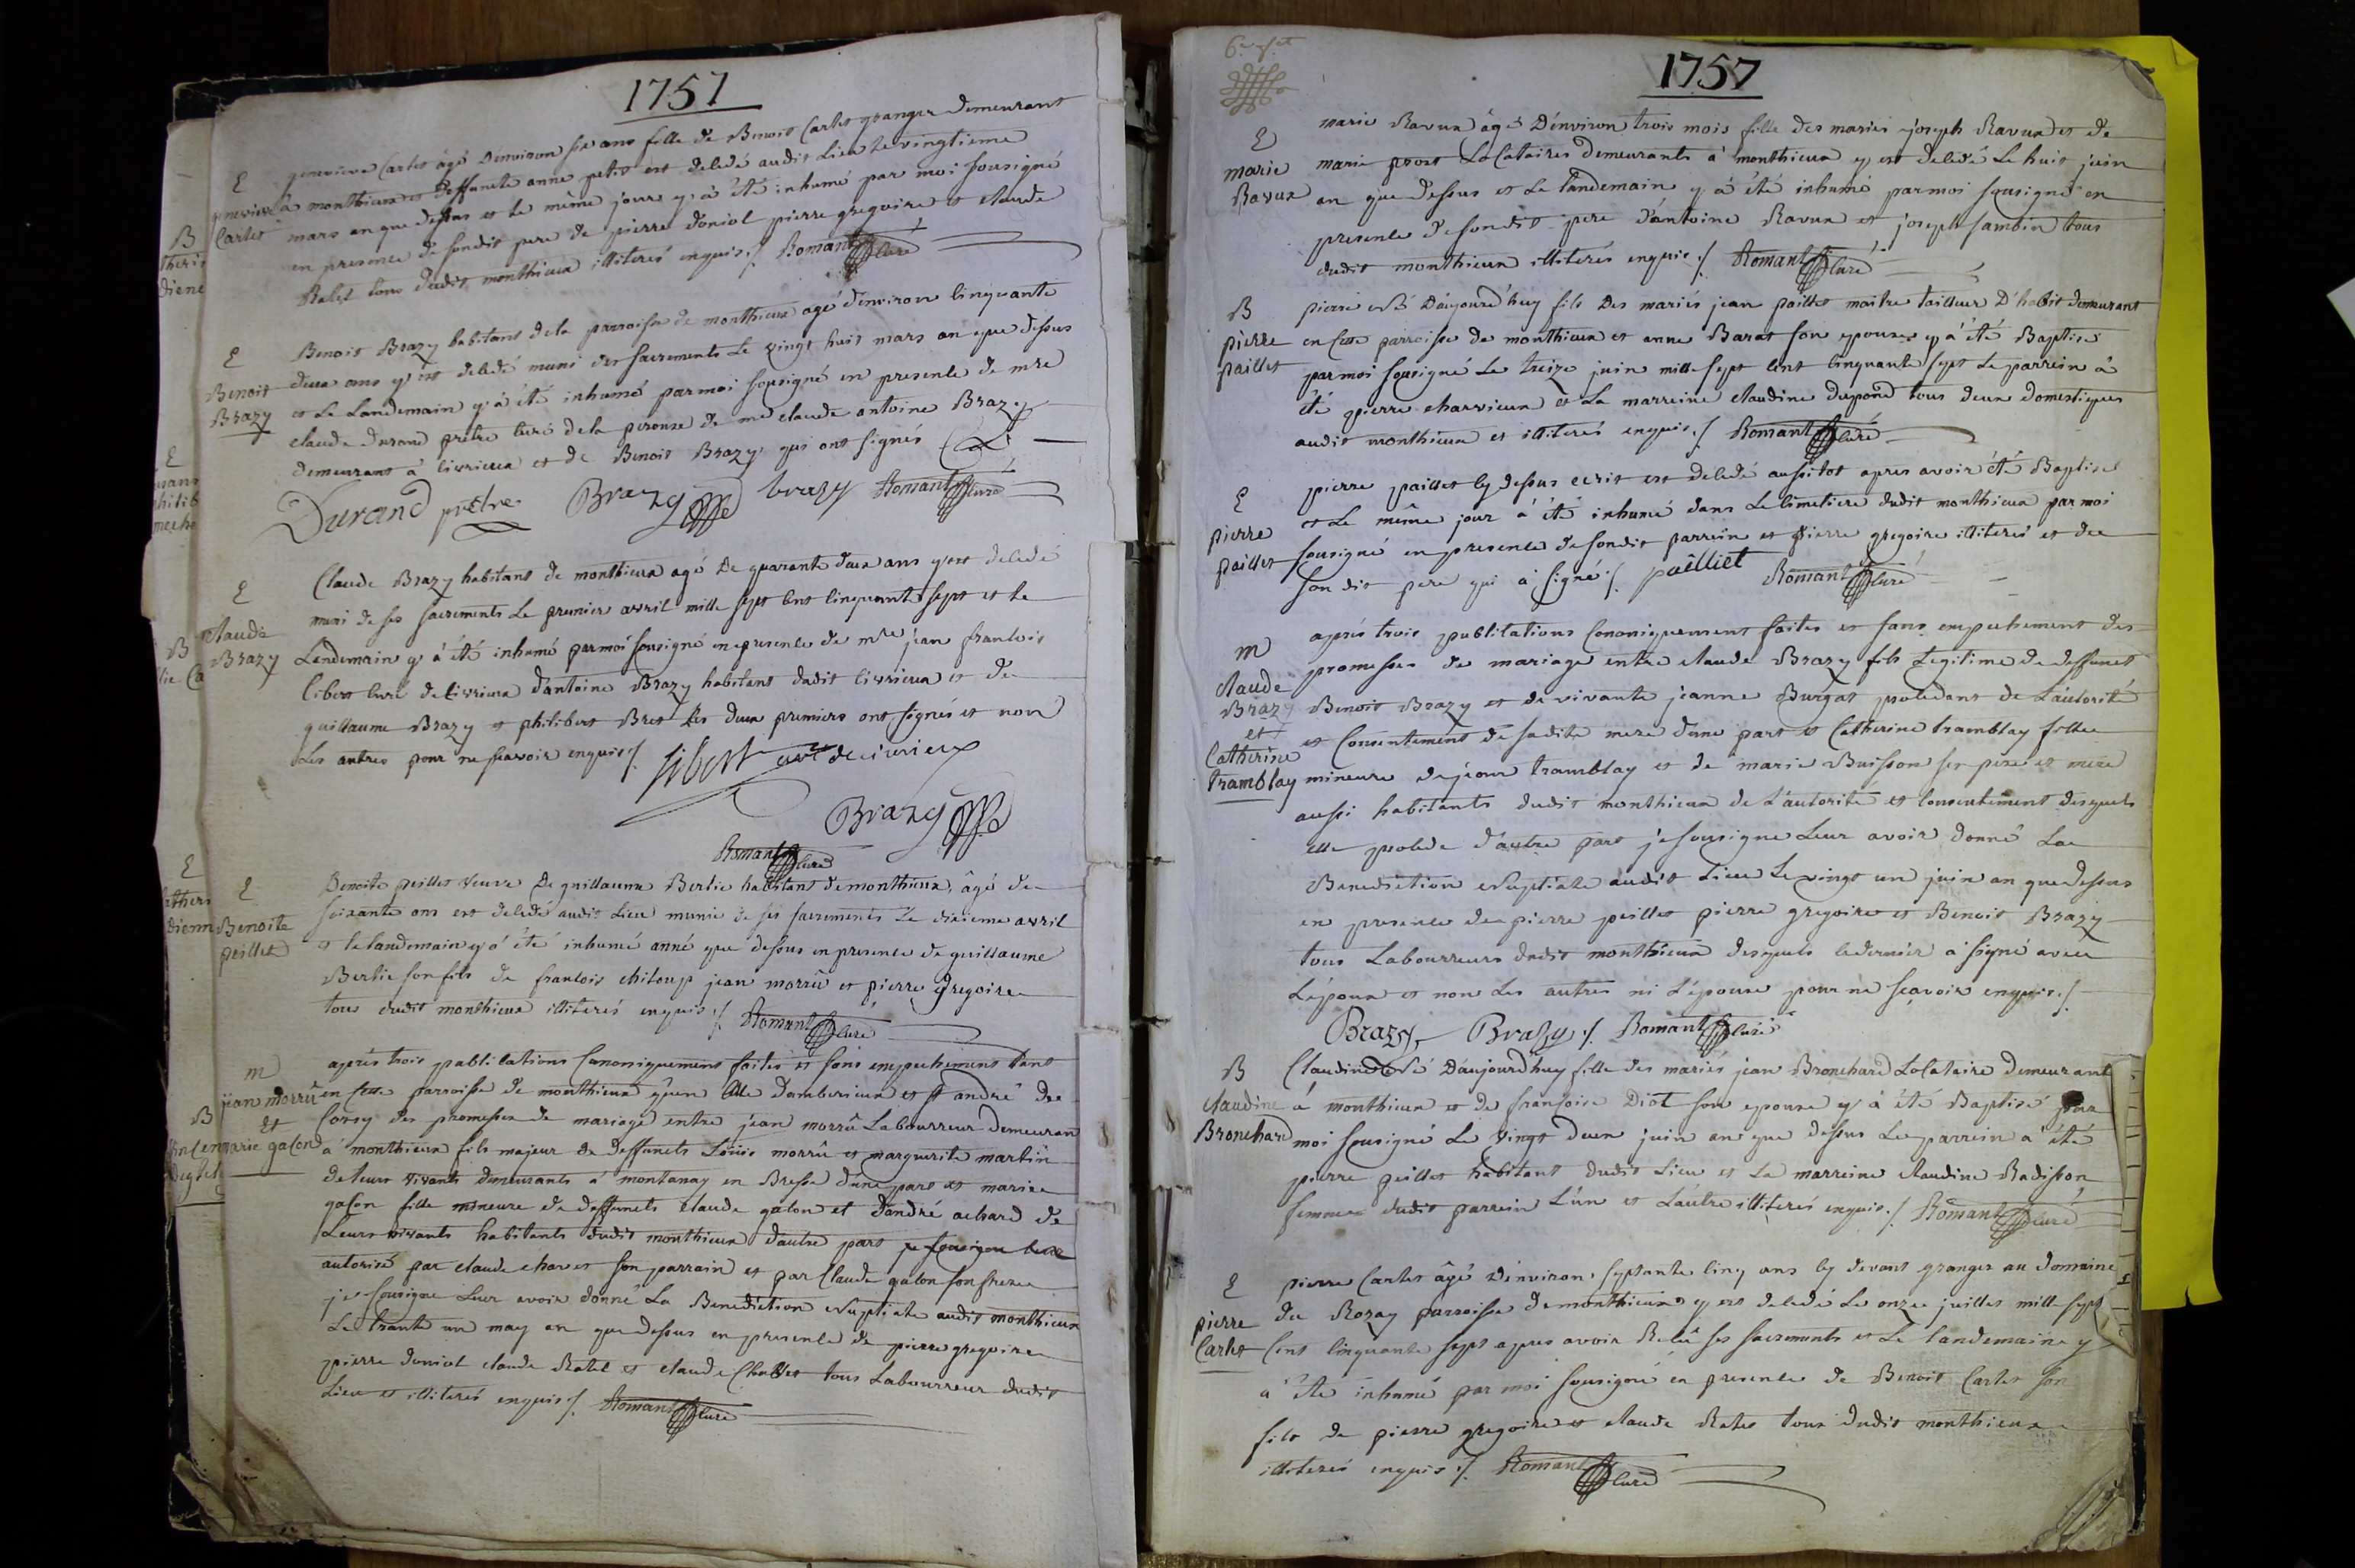 1757
E
genevieve
Carles
genevieve Carles âgé d'environ six ans fille de Benoit Carles granger demeurant
à monthieux et deffuncte anne petit est deledé audit Lieu le vingtieme
mars an que dessus et le même jour y à été inhumé par moi sousigné
en presence de sondit pere de pierre doniol pierre gregoire et claude
Ratel tous dudit monthieux illiterés enquis ./. Romant Curé
E
Benoit
Brazy
Benoit Brazy habitant de la parroisse de monthieux agé d'environ cinquante
deux ans y est deledé muni des sacrements Le vingt huit mars an que dessus
et Le Landemain y à été inhumé par moi sousigné en presence de mre
claude durand prêtre curé de la perouse de me claude antoine Brazy
demeurant à civrieux et de Benoit Brazy qui ont signés
Durand prêtre Brazy brazy Romant Curé
E
claude
Brazy
Claude Brazy habitant de monthieux agé de quarante deux ans y est deledé
muni de ses sacrements Le premier avril mille sept cent cinquante sept et le
Lendemain y à été inhumé par moi sousigné en presence de mre jean francois
libert curé de civrieux d'antoine Brazy habitant dudit civrieux et de
guillaume Brazy et philibert Bret Les deux premiers ont signés et non
Les autres pour ne sçavoir enquis ./. libert curé de civrieux
Brazy
Romant Curé
E
Benoite
peillet
Benoite peillet veuve de guillaume Berlie habitant de monthieux, âgé de
soixante ans est deledé audit Lieu munie de ses sacrements Le dixieme avril
et le landemain y à été inhumé anné que dessus en presence de guillaume
Berlie son fils de francois chiloup jean morrû et pierre gregoire
tous dudit monthieux illiterés enquis ./. Romant Curé
m
jean morrû
et
marie galon
après trois publications Canoniquement faites et sans empechement tant
en cette parroisse de monthieux qu'en celle d'amberieux et st andré de
Corcy des promesses de mariage entre jean morrû Labourreur demeurant
à monthieux fils majeur de deffuncts Loüis morrû et marguerite martin
de leurs vivants demeurants à montanay en Bresse d'une part et marie
galon fille mineure de deffuncts claude galon et d'andré achard de
Leurs vivants habitants dudit monthieux d'autre part
autorisé par claude charvet son parrain et par Claude galon son frere
je sousigne Leur avoir donné La Benediction Nuptiale audit monthieux
Le trante un may an que dessus en presence de pierre gregoire
pierre doniol claude Ratel et claude Challet tous Labourreur dudit
Lieu et illiterés enquis ./. Romant Curé
1757
E
marie
Ravux
marie Ravux âgé d'environ trois mois fille des mariés joseph Ravux et de
marie prost Locataires demeurants à monthieux y est deledé Le huit juin
an que dessus et Le landemain y à été inhumé par moi sousigné en
presence de sondit pere d'antoine Ravux et joseph sambin tous
dudit monthieux illiterés enquis ./. Romant Curé
B
pierre
paillet
pierre Né d'aujourd'huy fils des mariés jean paillet maitre tailleur d'habit demeurant
en cette parroisse de monthieux et anne Barat son epouse y à été Baptisé
par moi sousigné Le treize juin mille sept cent cinquante sept Le parrein à
été pierre charvieux et La marreine claudine dupond tous deux domestiques
audit monthieux et illiterés enquis ./. Romant Curé
E
pierre
paillet
pierre paillet cy dessus ecrit est deledé aussitot apres avoir été Baptisé
et Le même jour à été inhumé dans Le Cimetiere dudit monthieux par moi
sousigné en presence de sondit parrein et pierre gregoire illiterés et de
son dit pere qui à signé ./. pâilliet Romant Curé
m
claude
Brazy
et
Catherine
tramblay
après trois publications Canoniquement faites et sans empechement des
promesses de mariage entre claude Brazy fils Legitime de deffunct
Benoit Brazy et de vivante jeanne Burgat procedant de L'autorité
et Consentement de sadite mere d'une part et Catherine tramblay fille
mineure de jean tramblay et de marie Buisson ses pere et mere
aussi habitants dudit monthieux de L'autorité et consentement desquels
elle procede d'autre part je sousigne Leur avoir donné La
Benediction Nuptiale audit Lieu Le vingt un juin an que dessus
en presence de pierre peillet pierre gregoire et Benoit Brazy
tous Labourreurs dudit monthieux desquels le dernier à signé avec
L'epoux et non Les autres ni L'epouse pour ne sçavoir enquis ./.
Brazy Brazy ./. Romant Curé
B
claudine
Bronchard
Claudine Né d'aujourd'huy fille des mariés jean Bronchard Locataire demeurant
à monthieux et de francoise Diot son epouse y à été Baptisé par
moi sousigné Le vingt deux juin an que dessus Le parrein à été
pierre peillet habitant dudit Lieu et La marreine claudine Radisson
femme dudit parrein L'un et L'autre illiterés enquis ./. Romant Curé
E
pierre
Carles
pierre Carles âgé d'environ septante cinq ans cy devant granger au domaine
du Rozay parroisse de monthieux y est deledé Le onze juillet mille sept
Cent cinquante sept apres avoir Relû ses sacrements et Le landemain y
à été inhumé par moi sousigné en presence de Benoit Carles son
fils de pierre gregoire et claude Ratel tous dudit monthieux
illiterés enquis ./. Romant Curé